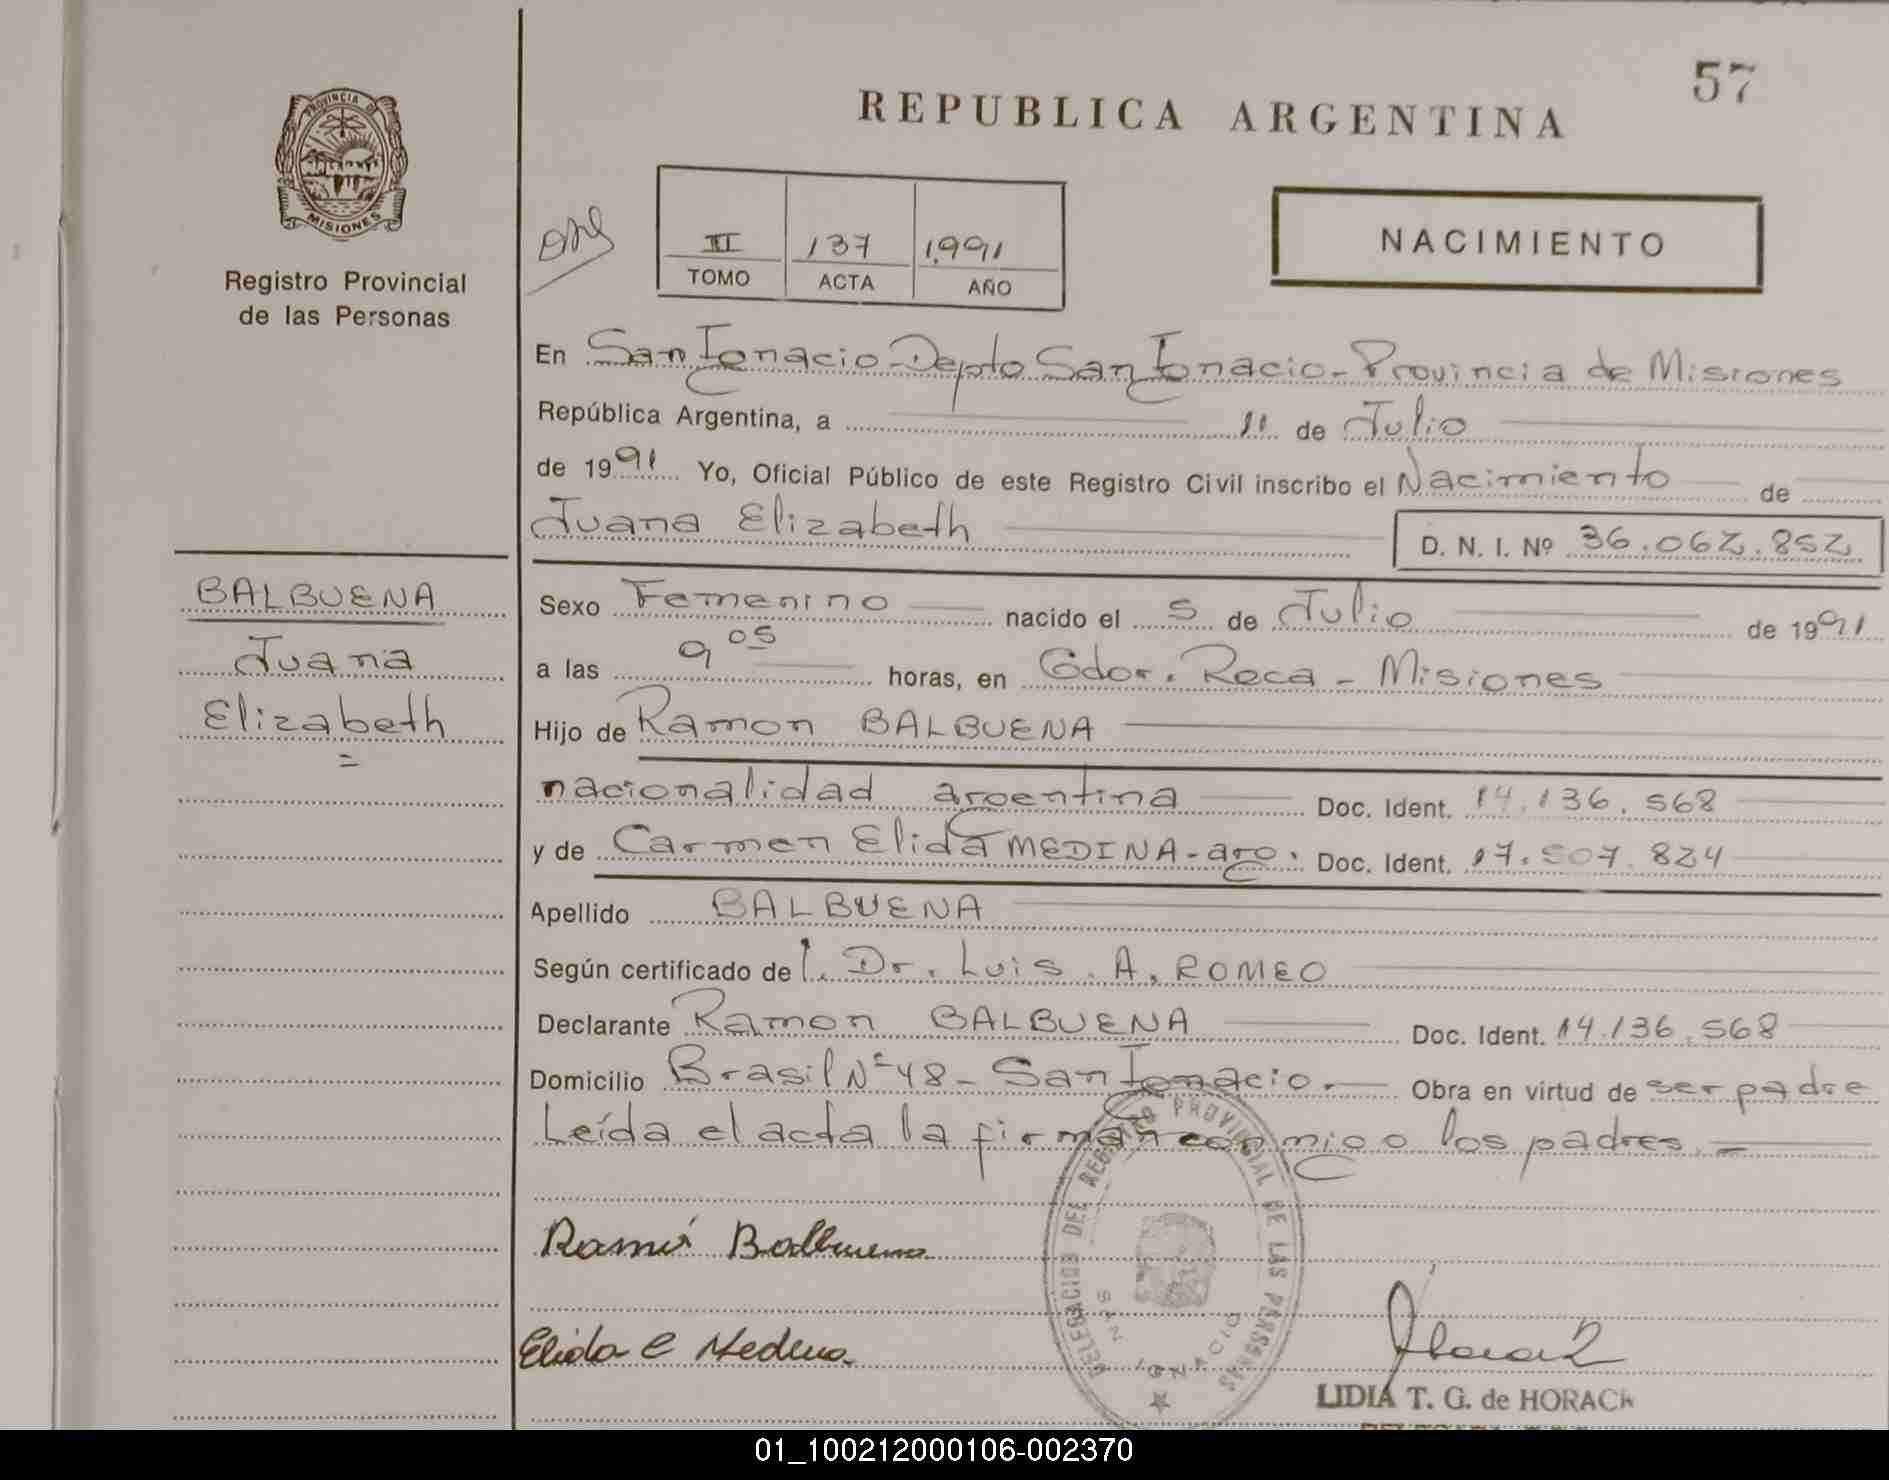 57
REPUBLICA ARGENTINA
PROVINCIA D
MISIONES
Registro Provincial
de las Personas
III 137 1.991
TOMO ACTA AÑO
NACIMIENTO
En San Ignacio - Depto San Ignacio - Provincia de Misiones
República Argentina, a 11 de Julio
de 1991 Yo, Oficial Público de este Registro Civil inscribo el Nacimiento de
Juana Elizabeth D. N. I. Nº 36.062.852
BALBUENA
Juana
Elizabeth
Sexo Femenino nacido el 5 de Julio de 1991
a las 9 05 horas, en Gdor. Roca - Misiones
Hijo de Ramon BALBUENA
nacionalidad argentina Doc. Ident. 14.136.568
y de Carmen Elida MEDINA - arg. Doc. Ident. 17.507.824
Apellido BALBUENA
Según certificado de l. Dr. Luis. A. ROMEO
Declarante Ramon BALBUENA Doc. Ident. 14.136.568
Domicilio Brasil Nº 48 - San Ignacio. Obra en virtud de ser padre
Leída el acta la firman conmigo los padres. -
DELEGACION DEL REGISTRO PROVINCIAL DE LAS PERSONAS
SAN IGNACIO
Ramón Balbuena
Elida C Medina
LIDIA T. G. de HORACK
01_100212000106-002370